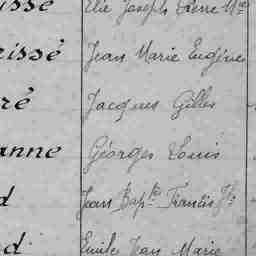 isse Elie Joseph Pierre Mie
rissé Jean Marie Eugène
ré Jacques Gilles
anne Georges Louis
d Jean Bapte Francis
d Emile Jean Marie